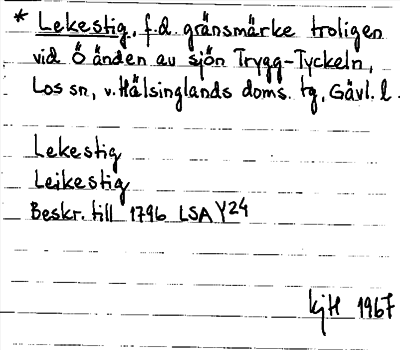 * Lekestig, f.d. gränsmärke troligen
vid Ö änden av sjön Trygg-Tyckeln,
Los sn, v. Hälsinglands doms. tg, Gävl. l.
Lekestig
Leikestig
Beskr. till 1796 LSA Y24
kjH 1967